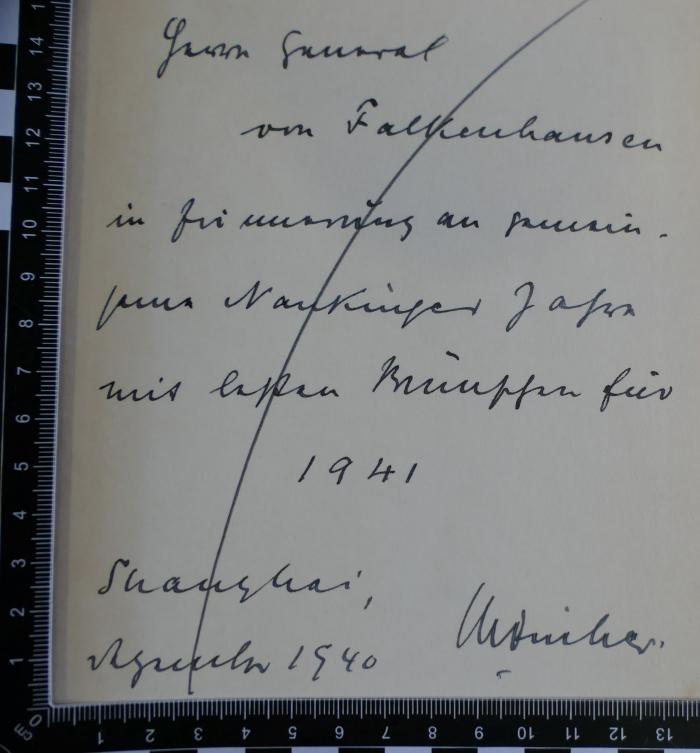 Herrn General
von Falkenhausen
in Erinnerung an gemein-
same Nankinger Jahre
mit besten Wünschen für
1941
Shanghai,
Dezember 1940
14 13 12 11 10 9 8 7 6 5 4 3 2 1 0 cm
1 2 3 4 5 6 7 8 9 10 11 12 13